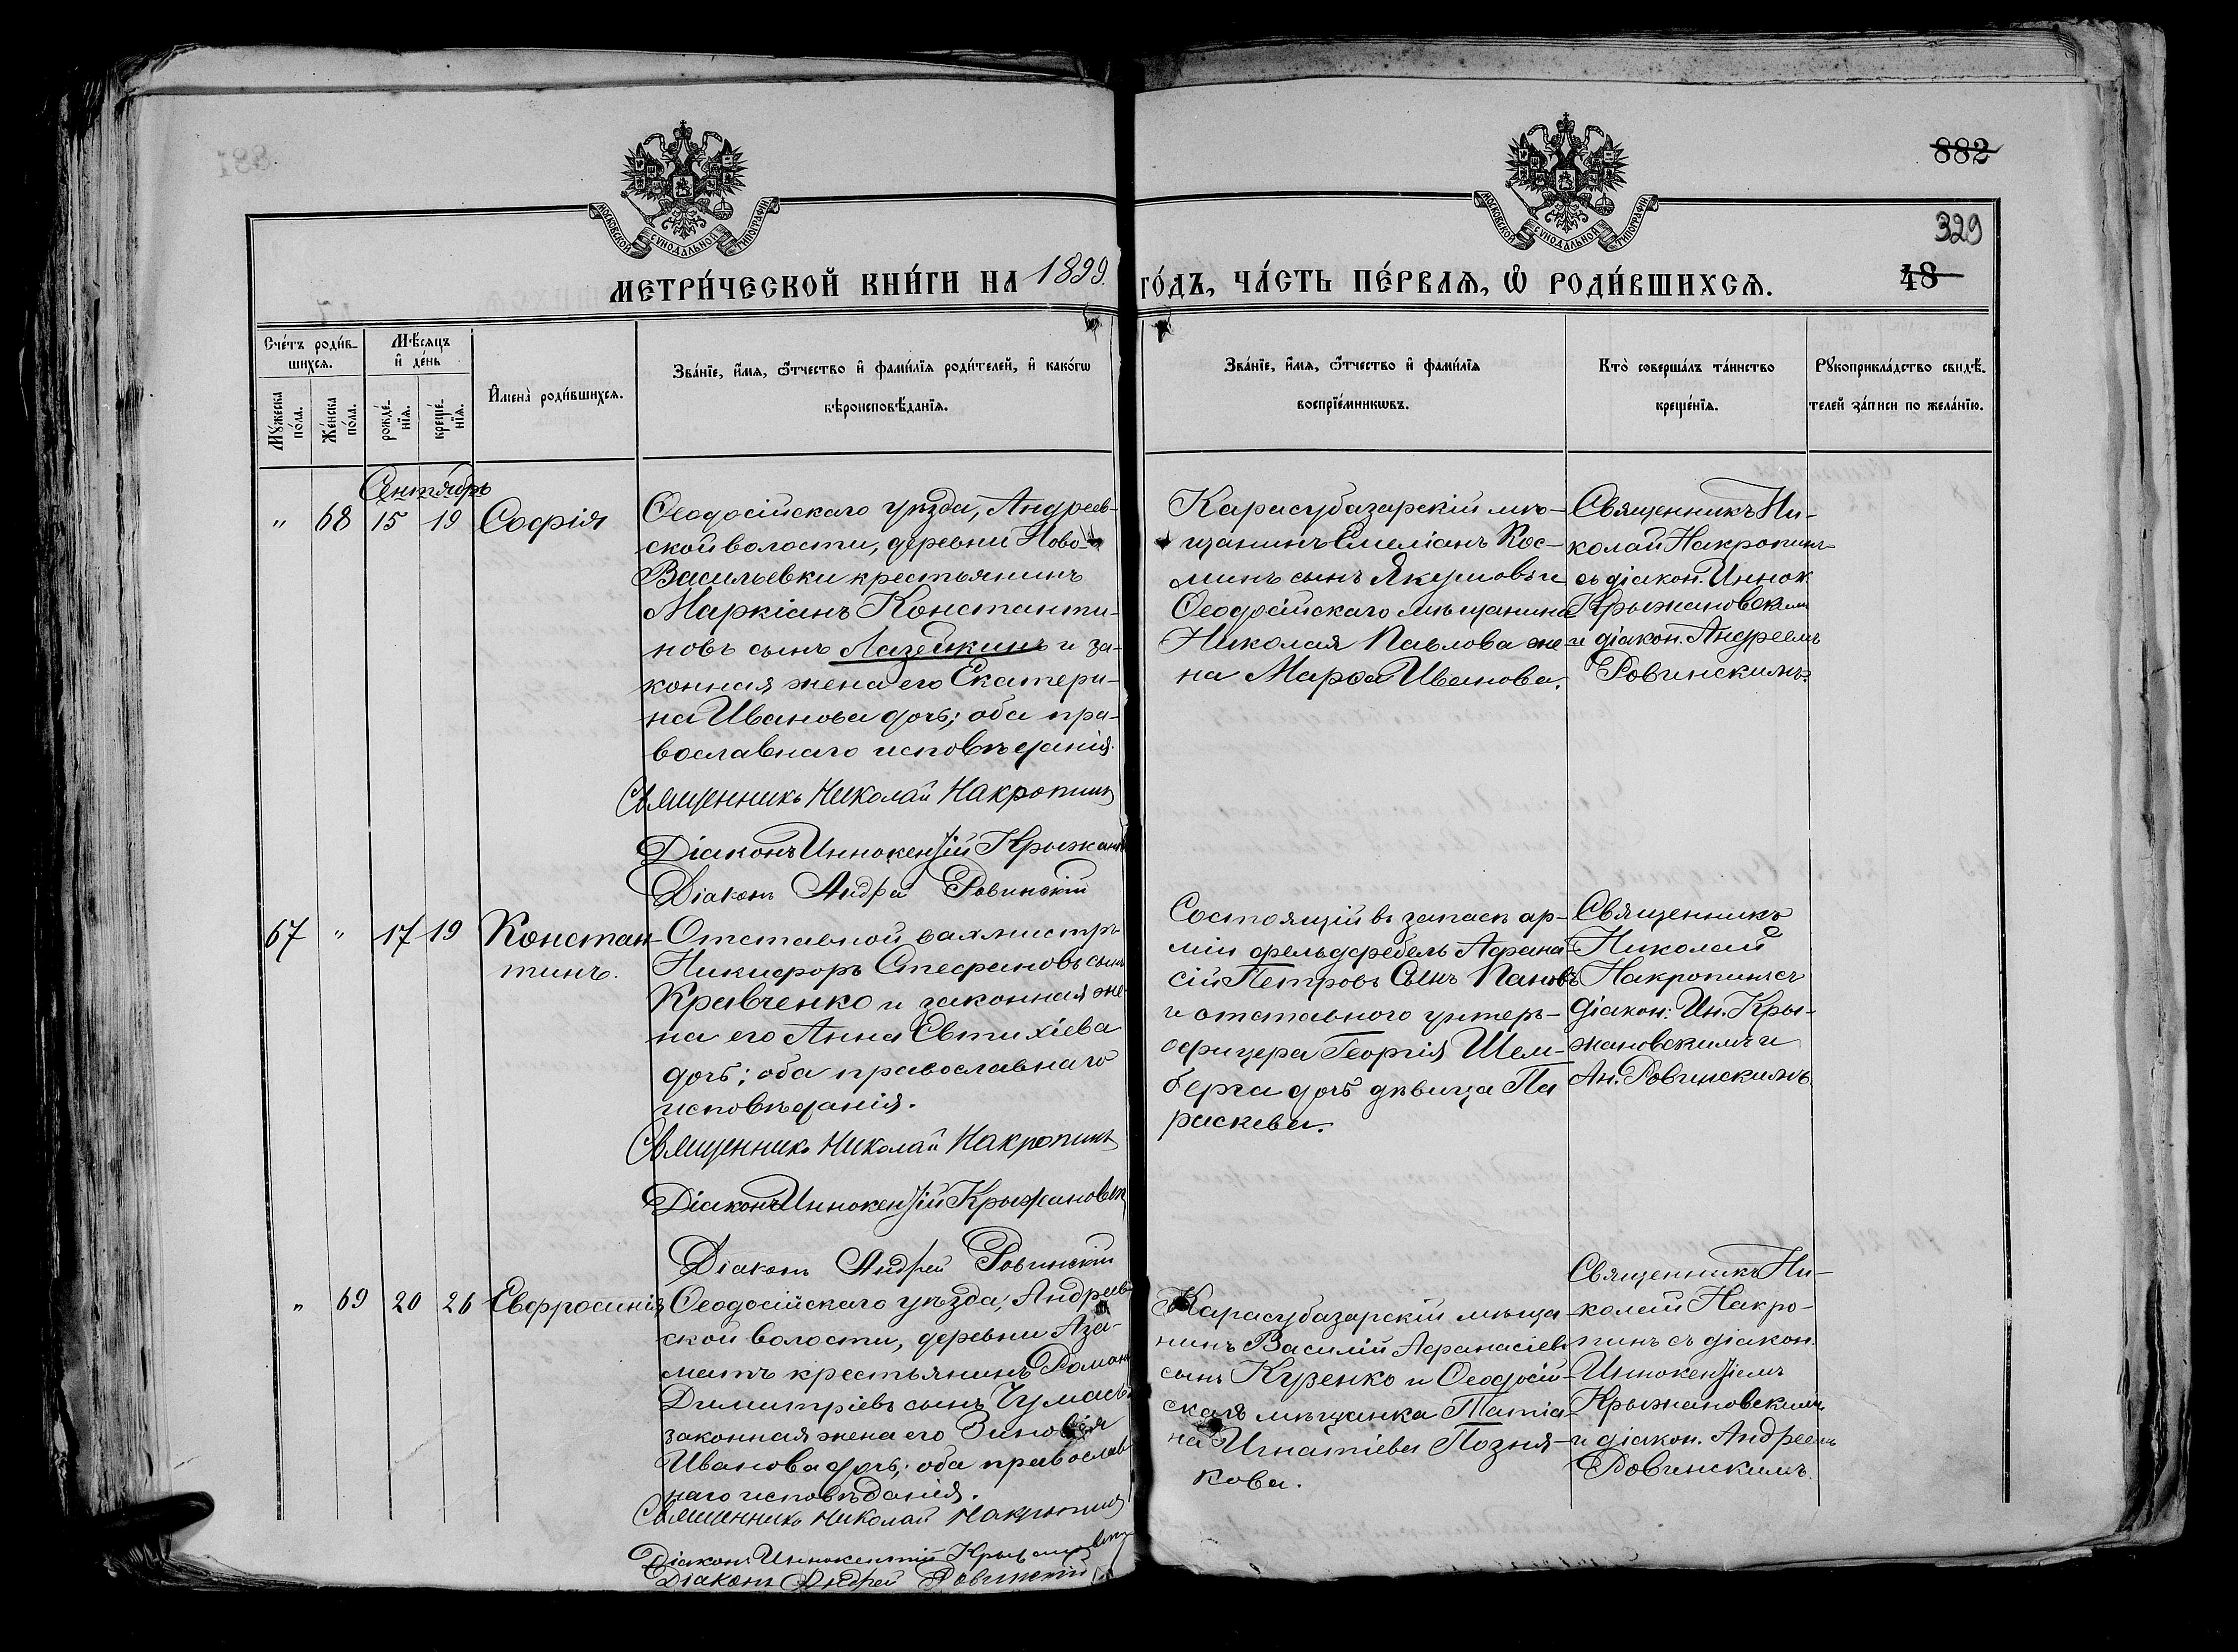 882
329
48
МОСКОВСКОЙ СѴНОДАЛЬНОЙ ТИПОГРАФІИ
МОСКОВСКОЙ СѴНОДАЛЬНОЙ ТИПОГРАФІИ
МЕТРИ́ЧЕСКОЙ КНИ́ГИ НА 1899 ГО́ДЪ, ЧА́СТЬ ПЕ́РВАѦ, Ѽ РОДИ́ВШИХСѦ.
Сче́тъ роди́в-
шихсѧ.
Мꙋ́жеска по́ла.
Же́нска по́ла.
Мѣ́сѧцъ и҆ де́нь
рожде́-нїѧ.
креще́-нїѧ.
И҆мена̀ роди́вшихсѧ.
Зва́нїе, и҆́мѧ, ѻ҆́тчество и҆ фами́лїѧ роди́телей, и҆ како́гѡ
вѣроисповѣ́данїѧ.
Зва́нїе, и҆́мѧ, ѻ҆́тчество и҆ фами́лїѧ
воспрїе́мникѡвъ.
Кто̀ соверша́лъ та́инство
креще́нїѧ.
Рꙋкоприкла́дство свидѣ́-
телей за́писи по жела́нїю.
Сентябрь
" 68 15 19 Софія
Ѳеодосійскаго уѣзда, Андреев-
ской волости, деревни Ново-
Васильевки крестьянинъ
Маркіанъ Константи-
новъ сынъ Лазейкинъ и за-
конная жена его Екатери-
на Иванова дочь; оба пра-
вославнаго исповѣданія.
Священникъ Николай Накропинъ
Діаконъ Иннокентій Крыжан
Діаконъ Андрей Ровинскій
Карасубазарскій мѣ-
щанинъ Емеліанъ Кос-
минъ сынъ Якушовъ и
Ѳеодосійскаго мѣщанина
Николая Павлова же-
на Марѳа Иванова.
Священникъ Ни-
колай Накропинъ
съ діакон. Иннок.
Крыжановским
и діакон. Андреемъ
Ровинскимъ.
67 " 17 19 Констан-
тинъ.
Отставной вахмистръ
Никифоръ Стефановъ сынъ
Кравченко и законная же-
на его Анна Евтихіева
дочь; оба православнаго
исповѣданія.
Священникъ Николай Накропинъ
Діаконъ Иннокентій Крыжановск
Діаконъ Андрей Ровинскій
Состоящій въ запасѣ ар-
міи фельдфебель Афана-
сій Петровъ сынъ Пановъ
и отставного унтеръ-
офицера Георгія Шем-
берга дочь дѣвица Па
раскева.
Священникъ
Николай
Накропинъ съ
діакон: Ин. Кры-
жановскимъ и
Ан. Ровинскимъ.
" 69 20 26 Евфросинія
Ѳеодосійскаго уѣзда, Андреев-
ской волости, деревни Аза-
матъ крестьянинъ Романъ
Димитріевъ сынъ
законная жена его Зиновія
Иванова дочь; оба православ-
наго исповѣданія.
Священникъ Николай Накропинъ
Діаконъ Иннокентій Крыжановск
Діаконъ Андрей Ровинскій
Карасубазарскій мѣща-
нинъ Василій Афанасіевъ
сынъ Куренко и Ѳеодосій-
ская мѣщанка Татіа-
на Игнатіева Позня-
кова.
Священникъ Ни-
колай Накро-
пинъ съ діакон.
Иннокентіемъ
Крыжановскимъ
и діакон. Андреемъ
Ровинскимъ.